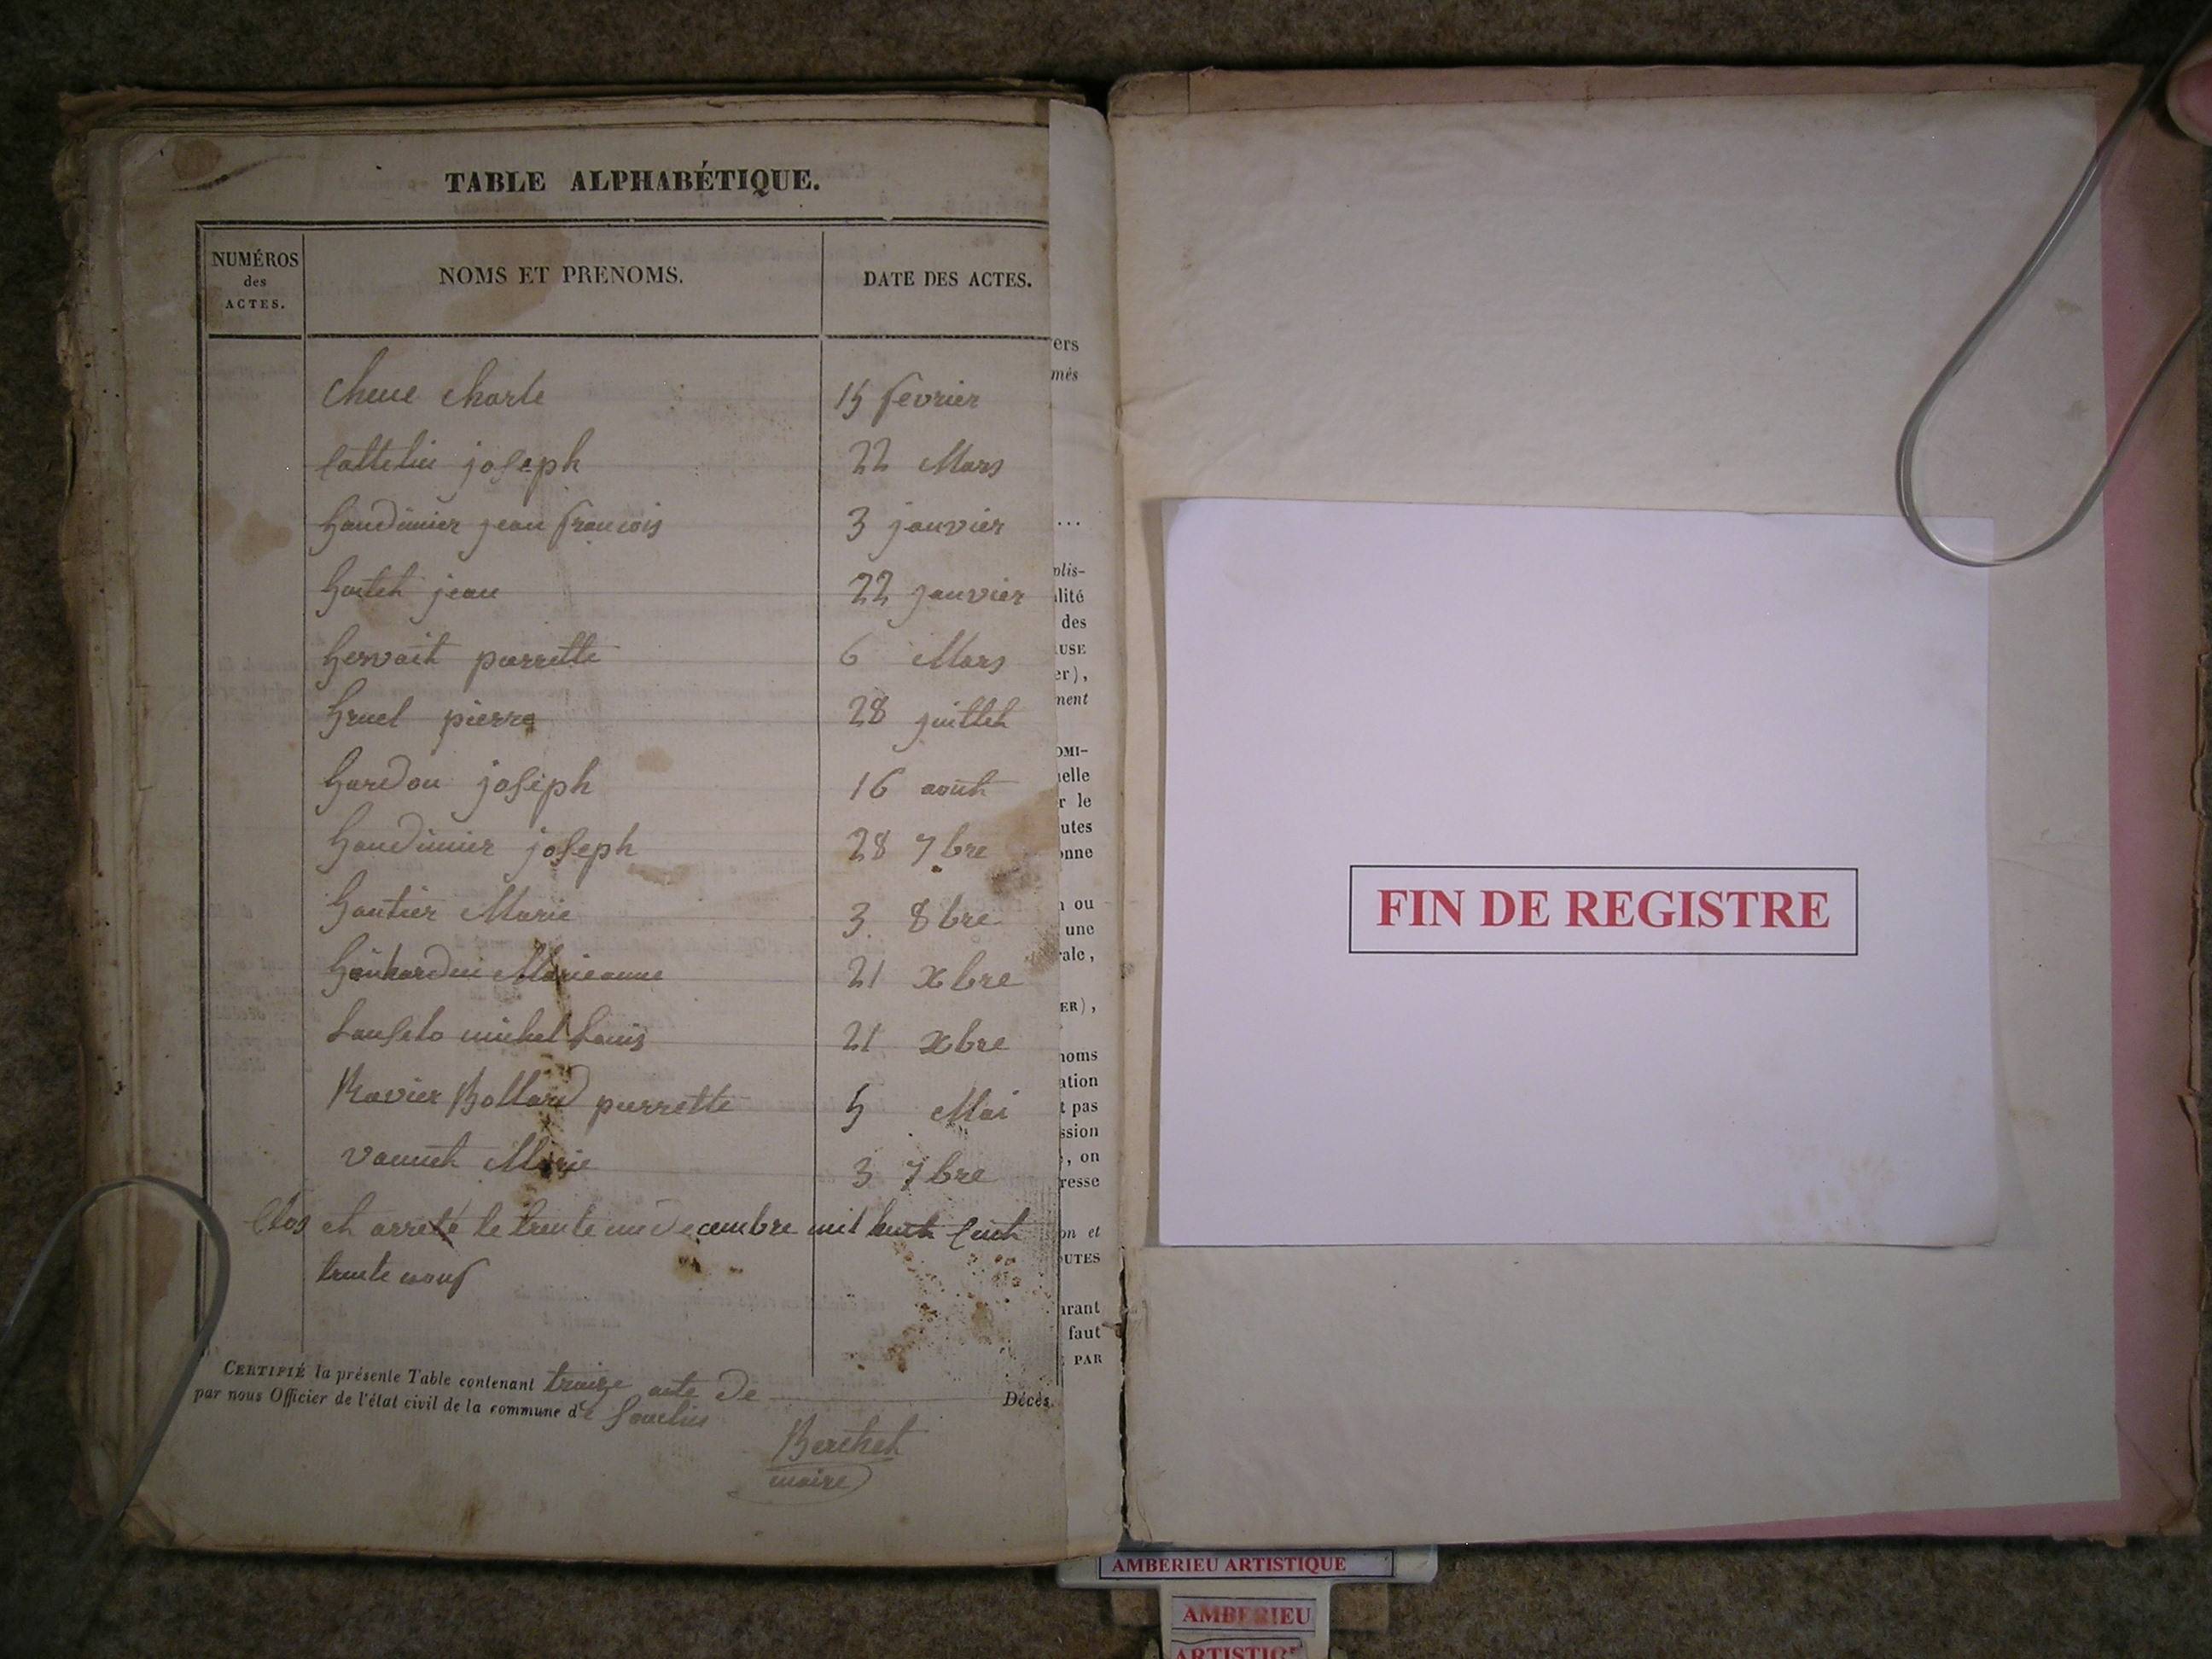 TABLE ALPHABÉTIQUE.
NUMÉROS des ACTES.
NOMS ET PRENOMS.
DATE DES ACTES.
Charle 15 fevrier
joseph 22 Mars
Gaudinier jean francois 3 janvier
jean 22 janvier
Gervait pierrette 6 Mars
Gruel pierre 28 juillet
Gardon joseph 16 aout
Gaudinier joseph 28 7bre
Gautier Marie 3 8bre
Marieanne 21 xbre
michel Louis 21 xbre
Ravier Bollard pierrette 5 Mai
Marie 3 7bre
Clos et arreté le trente un decembre mil huit cent
trente neuf
CERTIFIÉ la présente Table contenant treize acte de Décès
par nous Officier de l'état civil de la commune de
Berthet
maire
ers
més
...
plis-
lité
des
USE
er),
ment
OMI-
elle
r le
utes
onne
ou
une
rale,
ER),
noms
ation
t pas
ssion
, on
resse
on et
OUTES
urant
faut
PAR
FIN DE REGISTRE
AMBERIEU ARTISTIQUE
AMBERIEU
ARTISTIQUE